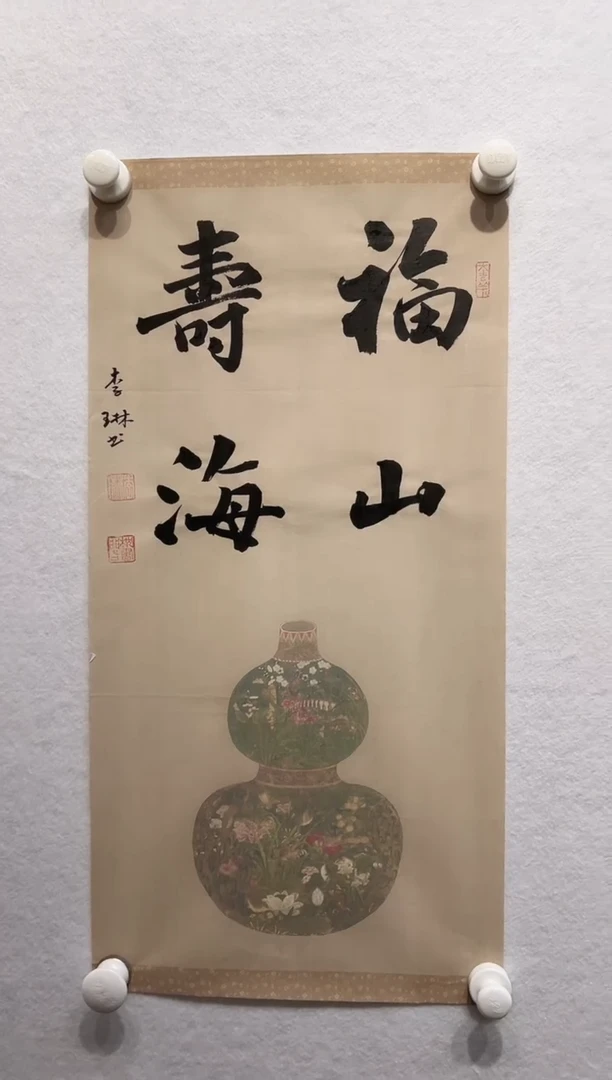 福山
壽海
李琳书